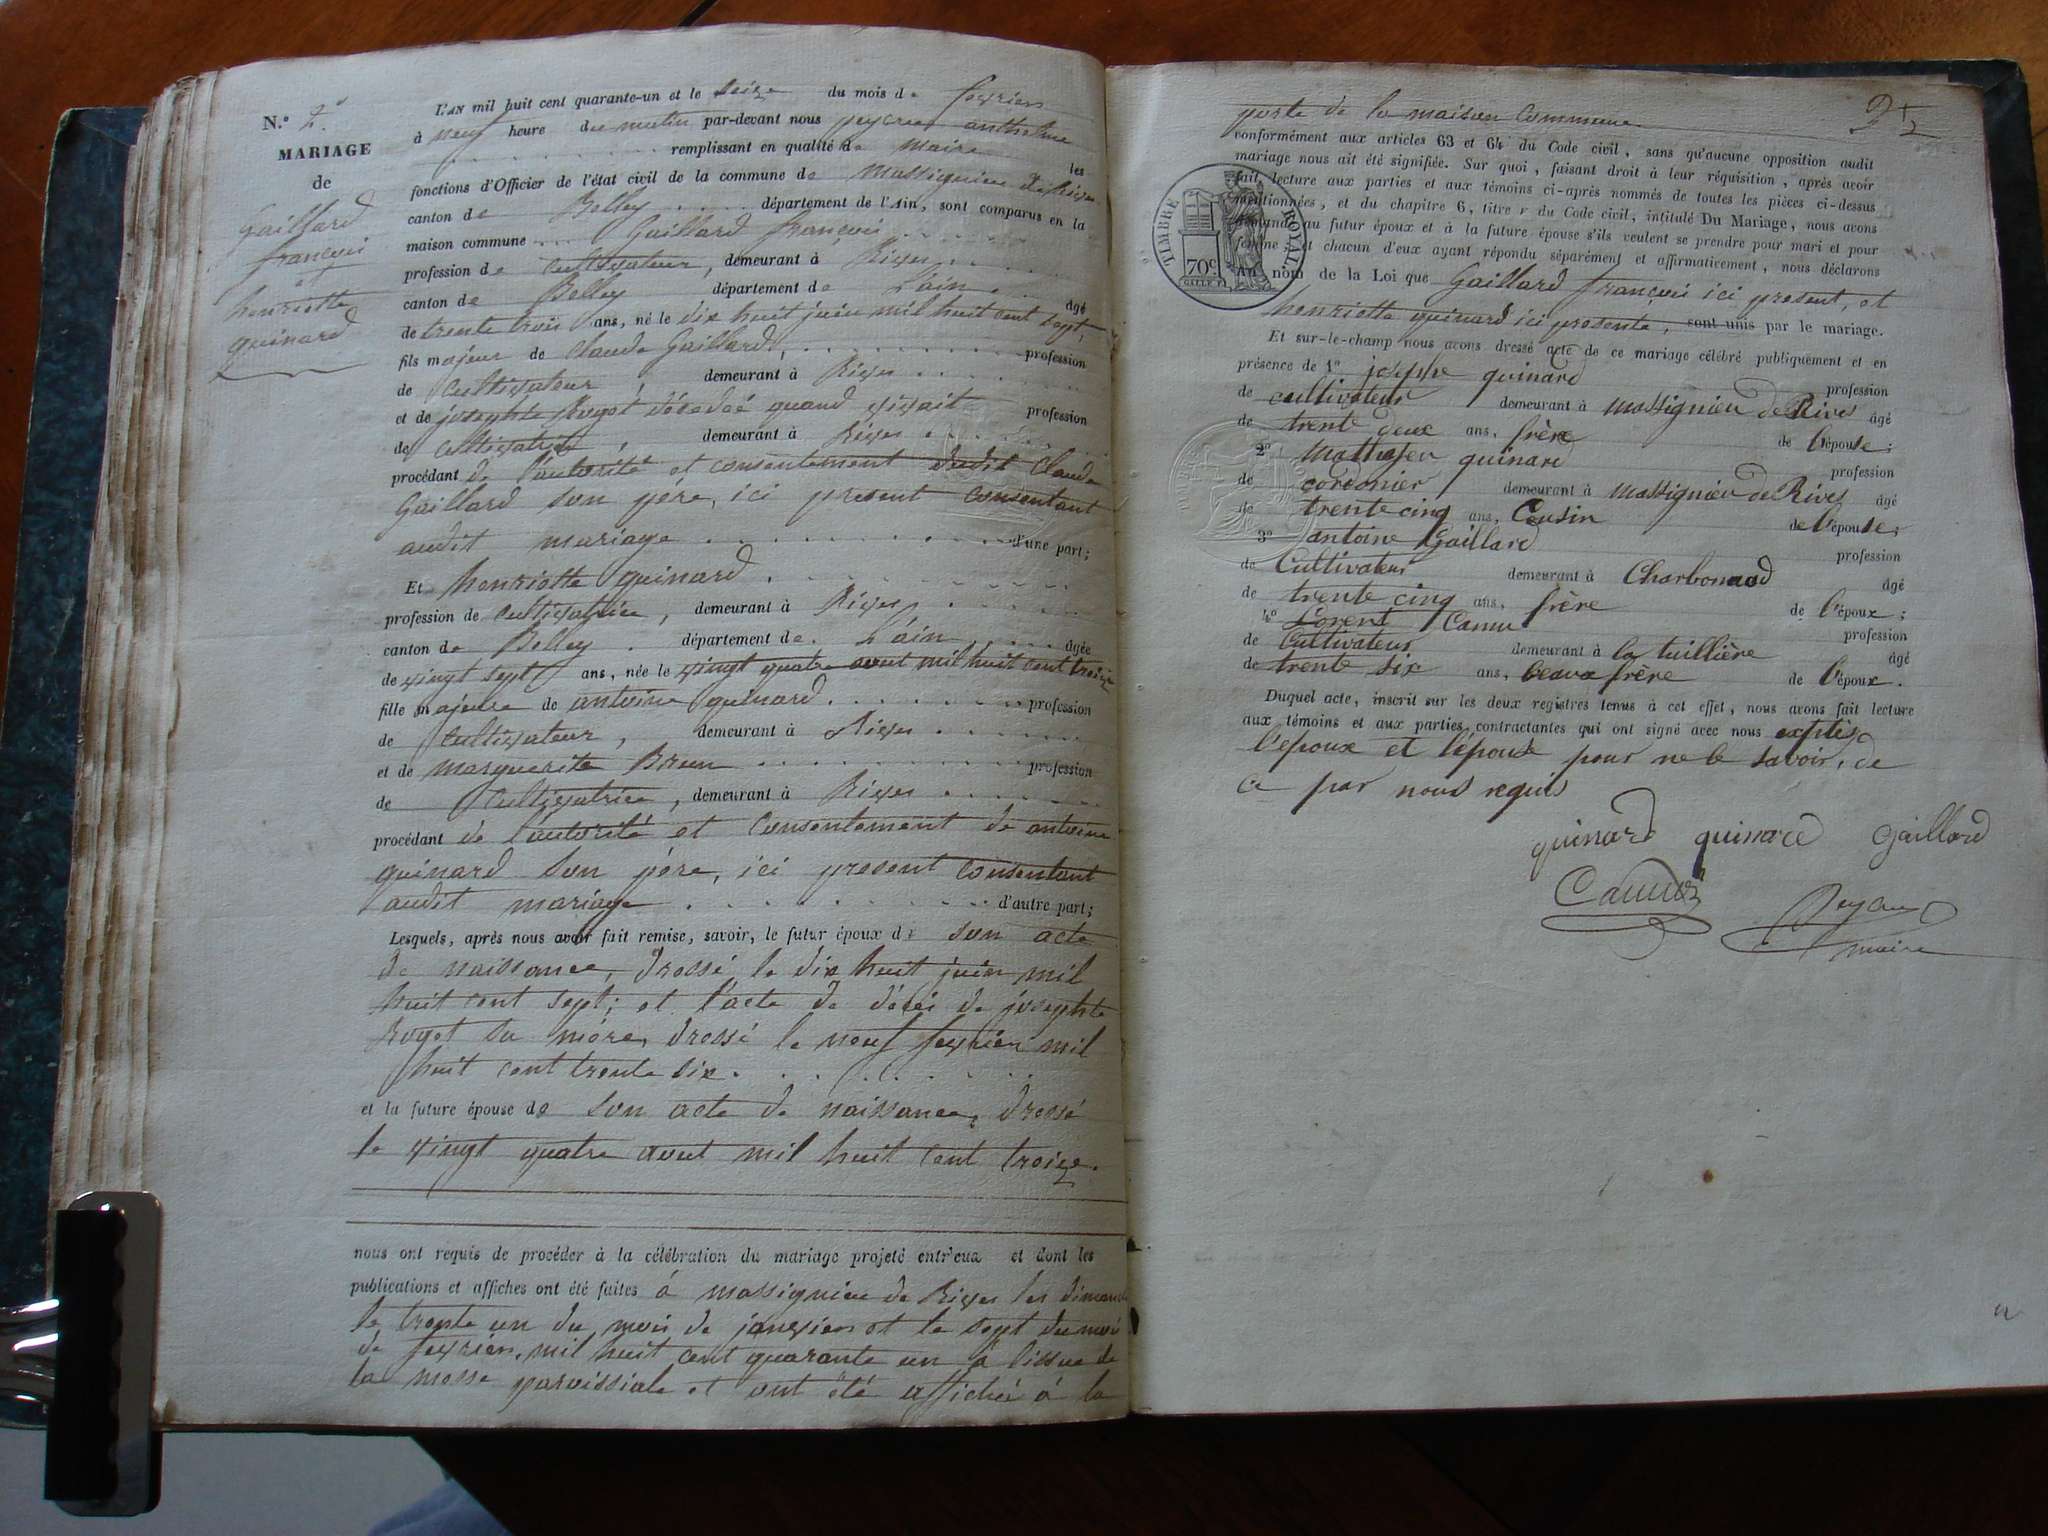 N.º 2.
MARIAGE
de
Gaillard
françois
et
henriette
guinard
L'AN mil huit cent quarante-un et le seize du mois de fevrier
à neuf heure du matin par-devant nous peycru anthelme
remplissant en qualité de maire les
fonctions d'Officier de l'état civil de la commune de massignieu de Rives
canton de Belley département de l'Ain, sont comparus en la
maison commune Gaillard françois
profession de cultivateur, demeurant à Rives
canton de Belley département de L'ain âgé
de trente trois ans, né le dix huit juin mil huit cent sept,
fils majeur de claude Gaillard, profession
de cultivateur, demeurant à Rives
et de josephte Roget décédeé quand vivait profession
de cultivatrice, demeurant à Rives
procédant de l'autorité et consentement dudit Claude
Gaillard son père, ici present consentant
audit mariage d'une part;
Et henriette guinard
profession de cultivatrice, demeurant à Rives
canton de Belley département de L'ain âgée
de vingt sept ans, née le vingt quatre aout mil huit cent treize
fille majeure de antoine guinard profession
de cultivateur, demeurant à Rives
et de marguerite Brun profession
de cultivatrice, demeurant à Rives
procédant de l'autorité et consentement de antoine
guinard son père, ici present consentant
audit mariage d'autre part;
Lesquels, après nous avoir fait remise, savoir, le futur époux de son acte
de naissance, dressé le dix huit juin mil
huit cent sept; et l'acte de décés de josephte
Roget sa mère, dressé le neuf fevrier mil
huit cent trente six.
et la future épouse de son acte de naissance, dressé
le vingt quatre aout mil huit cent treize.
nous ont requis de procéder à la célébration du mariage projeté entr'eux et dont les
publications et affiches ont été faites à massignieu de Rives les dimanche
le trente un du mois de janvier et le sept du moi
de fevrier, mil huit cent quarante un à l'issue de
la messe paroissiale et ont été affiché à la
porte de la maison commune
conformément aux articles 63 et 64 du Code civil, sans qu'aucune opposition audit
mariage nous ait été signifiée. Sur quoi, faisant droit à leur réquisition, après avoir
fait lecture aux parties et aux témoins ci-après nommés de toutes les pièces ci-dessus
mentionnées, et du chapitre 6, titre v du Code civil, intitulé Du Mariage, nous avons
demandé au futur époux et à la future épouse s'ils veulent se prendre pour mari et pour
femme, et chacun d'eux ayant répondu séparément et affirmativement, nous déclarons
au nom de la Loi que Gaillard françois ici present, et
henriette guinard ici presente, sont unis par le mariage.
TIMBRE ROYAL
70c
Et sur-le-champ nous avons dressé acte de ce mariage célébré publiquement et en
présence de 1º joseph guinard profession
de cultivateur demeurant à massignieu de Rives âgé
de trente deux ans, frère de l'épouse;
2º Mathieu guinard profession
de cordonier demeurant à massignieu de Rives âgé
de trente cinq ans, Cousin de l'épouse;
3º antoine Gaillard profession
de Cultivateur demeurant à Charbonaod âgé
de trente cinq ans, frère de l'époux;
4º Lorent Camu profession
de Cultivateur demeurant à la tuillière âgé
de trente six ans, beaux frère de l'époux.
Duquel acte, inscrit sur les deux registres tenus à cet effet, nous avons fait lecture
aux témoins et aux parties contractantes qui ont signé avec nous exptés
l'époux et l'épouse pour ne le savoir, de
ce par nous requis
guinard guinard Gaillard
Camus
Peycru
maire